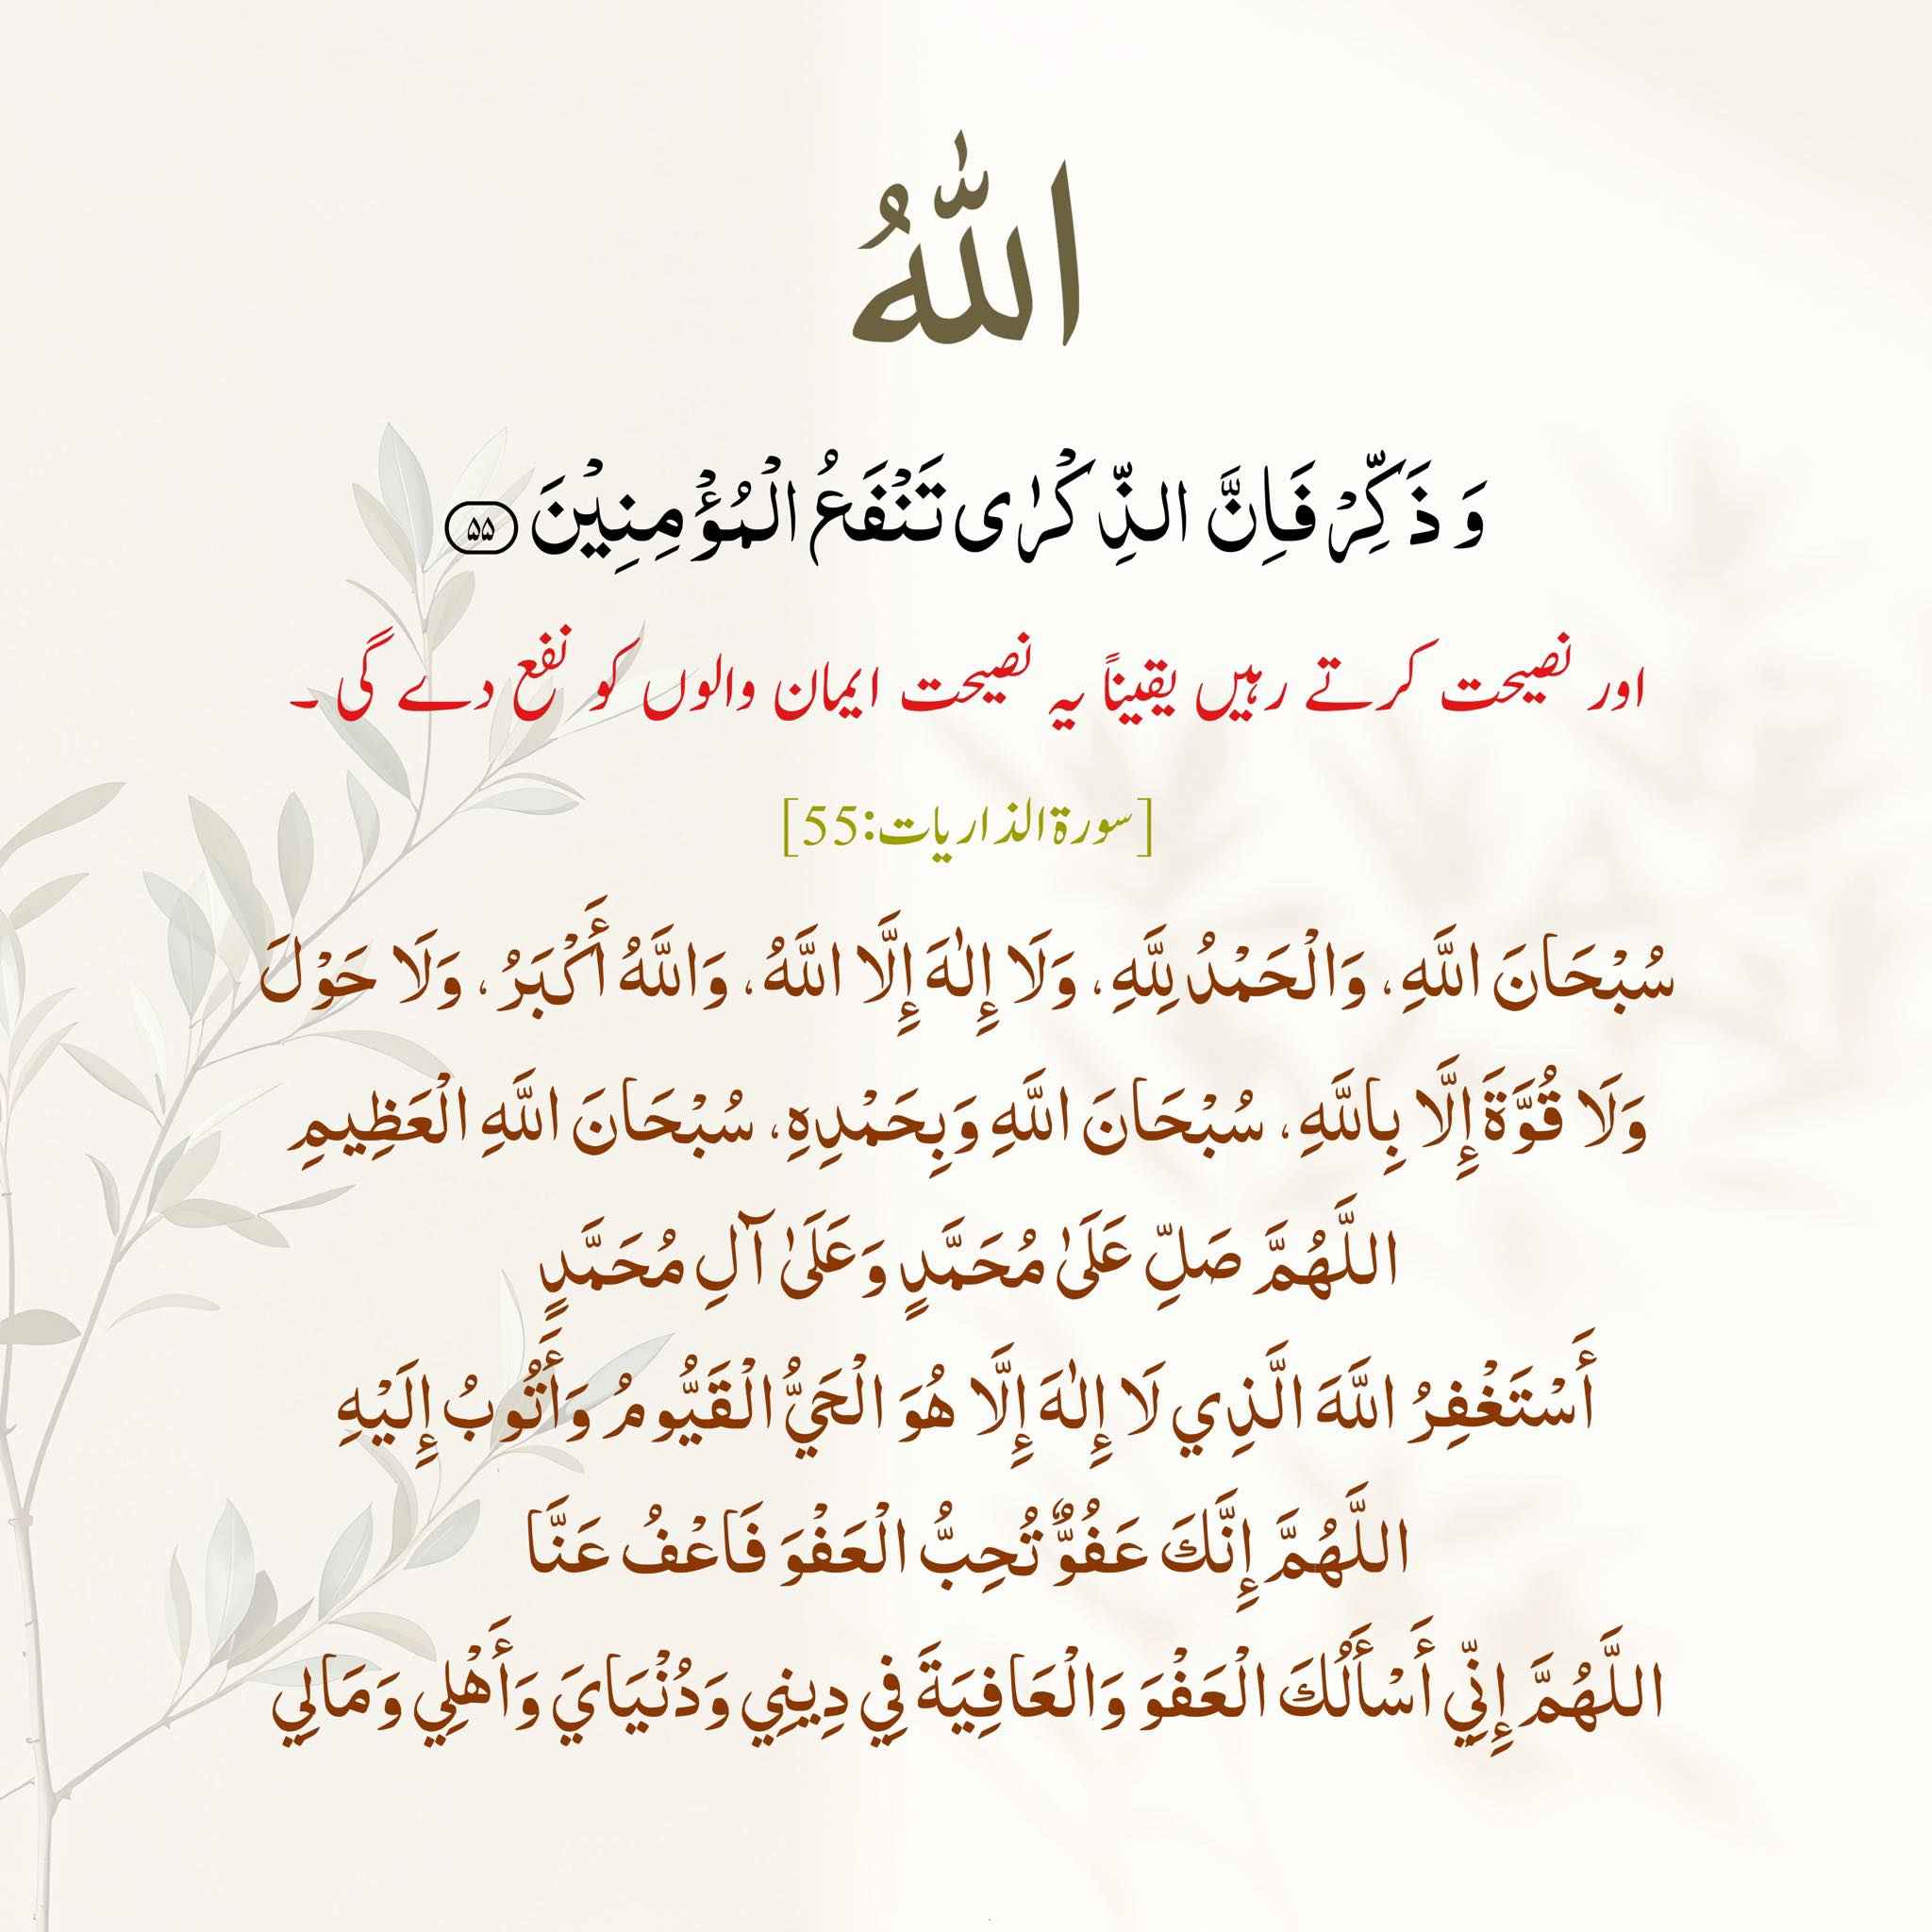 اللّٰهُ
وَ ذَكِّرْ فَاِنَّ الذِّكْرٰى تَنْفَعُ الْمُؤْمِنِيْنَ ۵۵
اور نصیحت کرتے رہیں یقیناً یہ نصیحت ایمان والوں کو نفع دے گی ۔
[سورۃ الذاریات:55]
سُبْحَانَ اللَّهِ، وَالْحَمْدُ لِلَّهِ، وَلَا إِلٰهَ إِلَّا اللَّهُ، وَاللَّهُ أَكْبَرُ، وَلَا حَوْلَ
وَلَا قُوَّةَ إِلَّا بِاللَّهِ، سُبْحَانَ اللَّهِ وَبِحَمْدِهِ، سُبْحَانَ اللَّهِ الْعَظِيمِ
اللَّهُمَّ صَلِّ عَلَىٰ مُحَمَّدٍ وَعَلَىٰ آلِ مُحَمَّدٍ
أَسْتَغْفِرُ اللَّهَ الَّذِي لَا إِلٰهَ إِلَّا هُوَ الْحَيُّ الْقَيُّومُ وَأَتُوبُ إِلَيْهِ
اللَّهُمَّ إِنَّكَ عَفُوٌّ تُحِبُّ الْعَفْوَ فَاعْفُ عَنَّا
اللَّهُمَّ إِنِّي أَسْأَلُكَ الْعَفْوَ وَالْعَافِيَةَ فِي دِينِي وَدُنْيَايَ وَأَهْلِي وَمَالِي